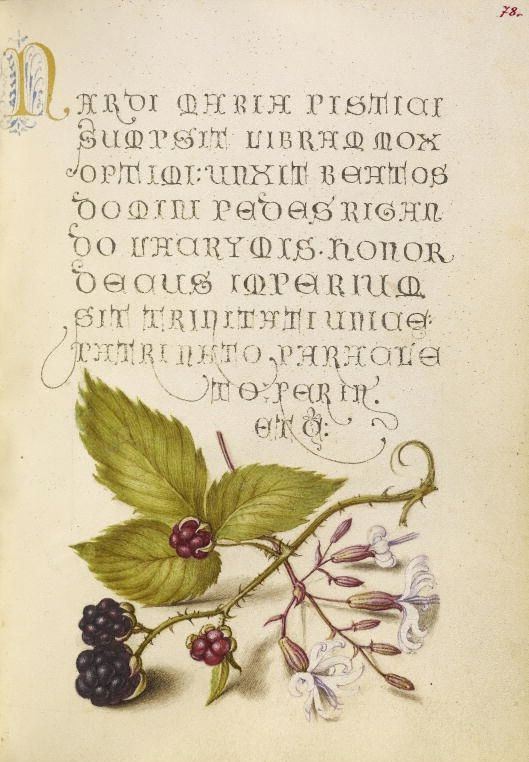 78.
NARDI MARIA PISTICI
SUMPSIT LIBRAM MOX
OPTIMI: UNXIT BEATOS
DOMINI PEDES RIGAN
DO LACRYMIS. HONOR
DECUS IMPERIUM
SIT TRINITATI UNICE:
PATRI NATO PARACLE
TO: PER IN.
ET Q: